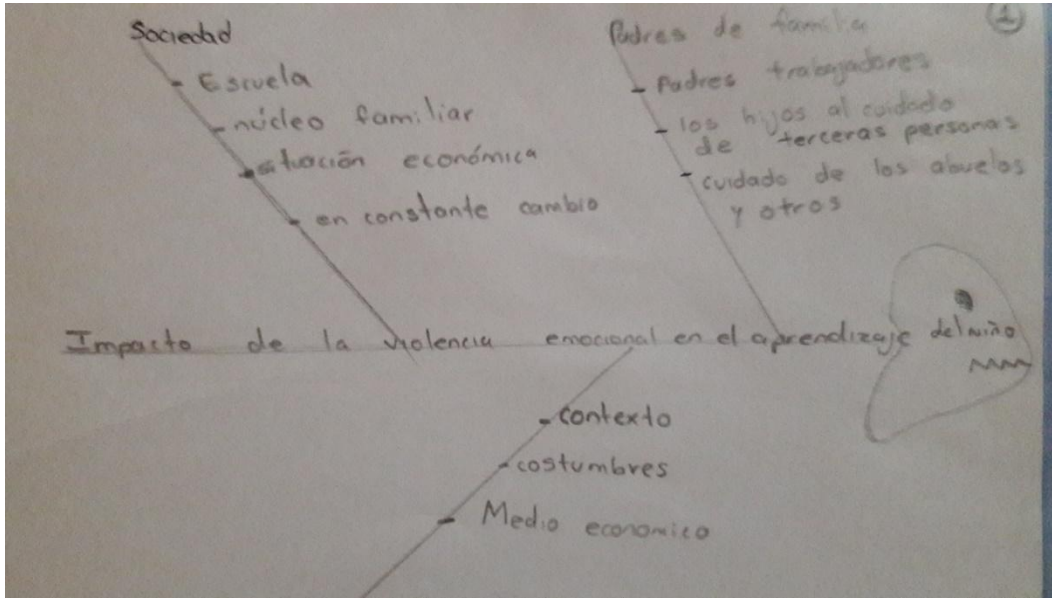 1
Sociedad
- Escuela
- núcleo familiar
- situación económica
- en constante cambio
Padres de familia
- Padres trabajadores
- los hijos al cuidado
de terceras personas
- cuidado de los abuelos
y otros
Impacto de la violencia emocional en el aprendizaje del niño
- contexto
- costumbres
- Medio economico